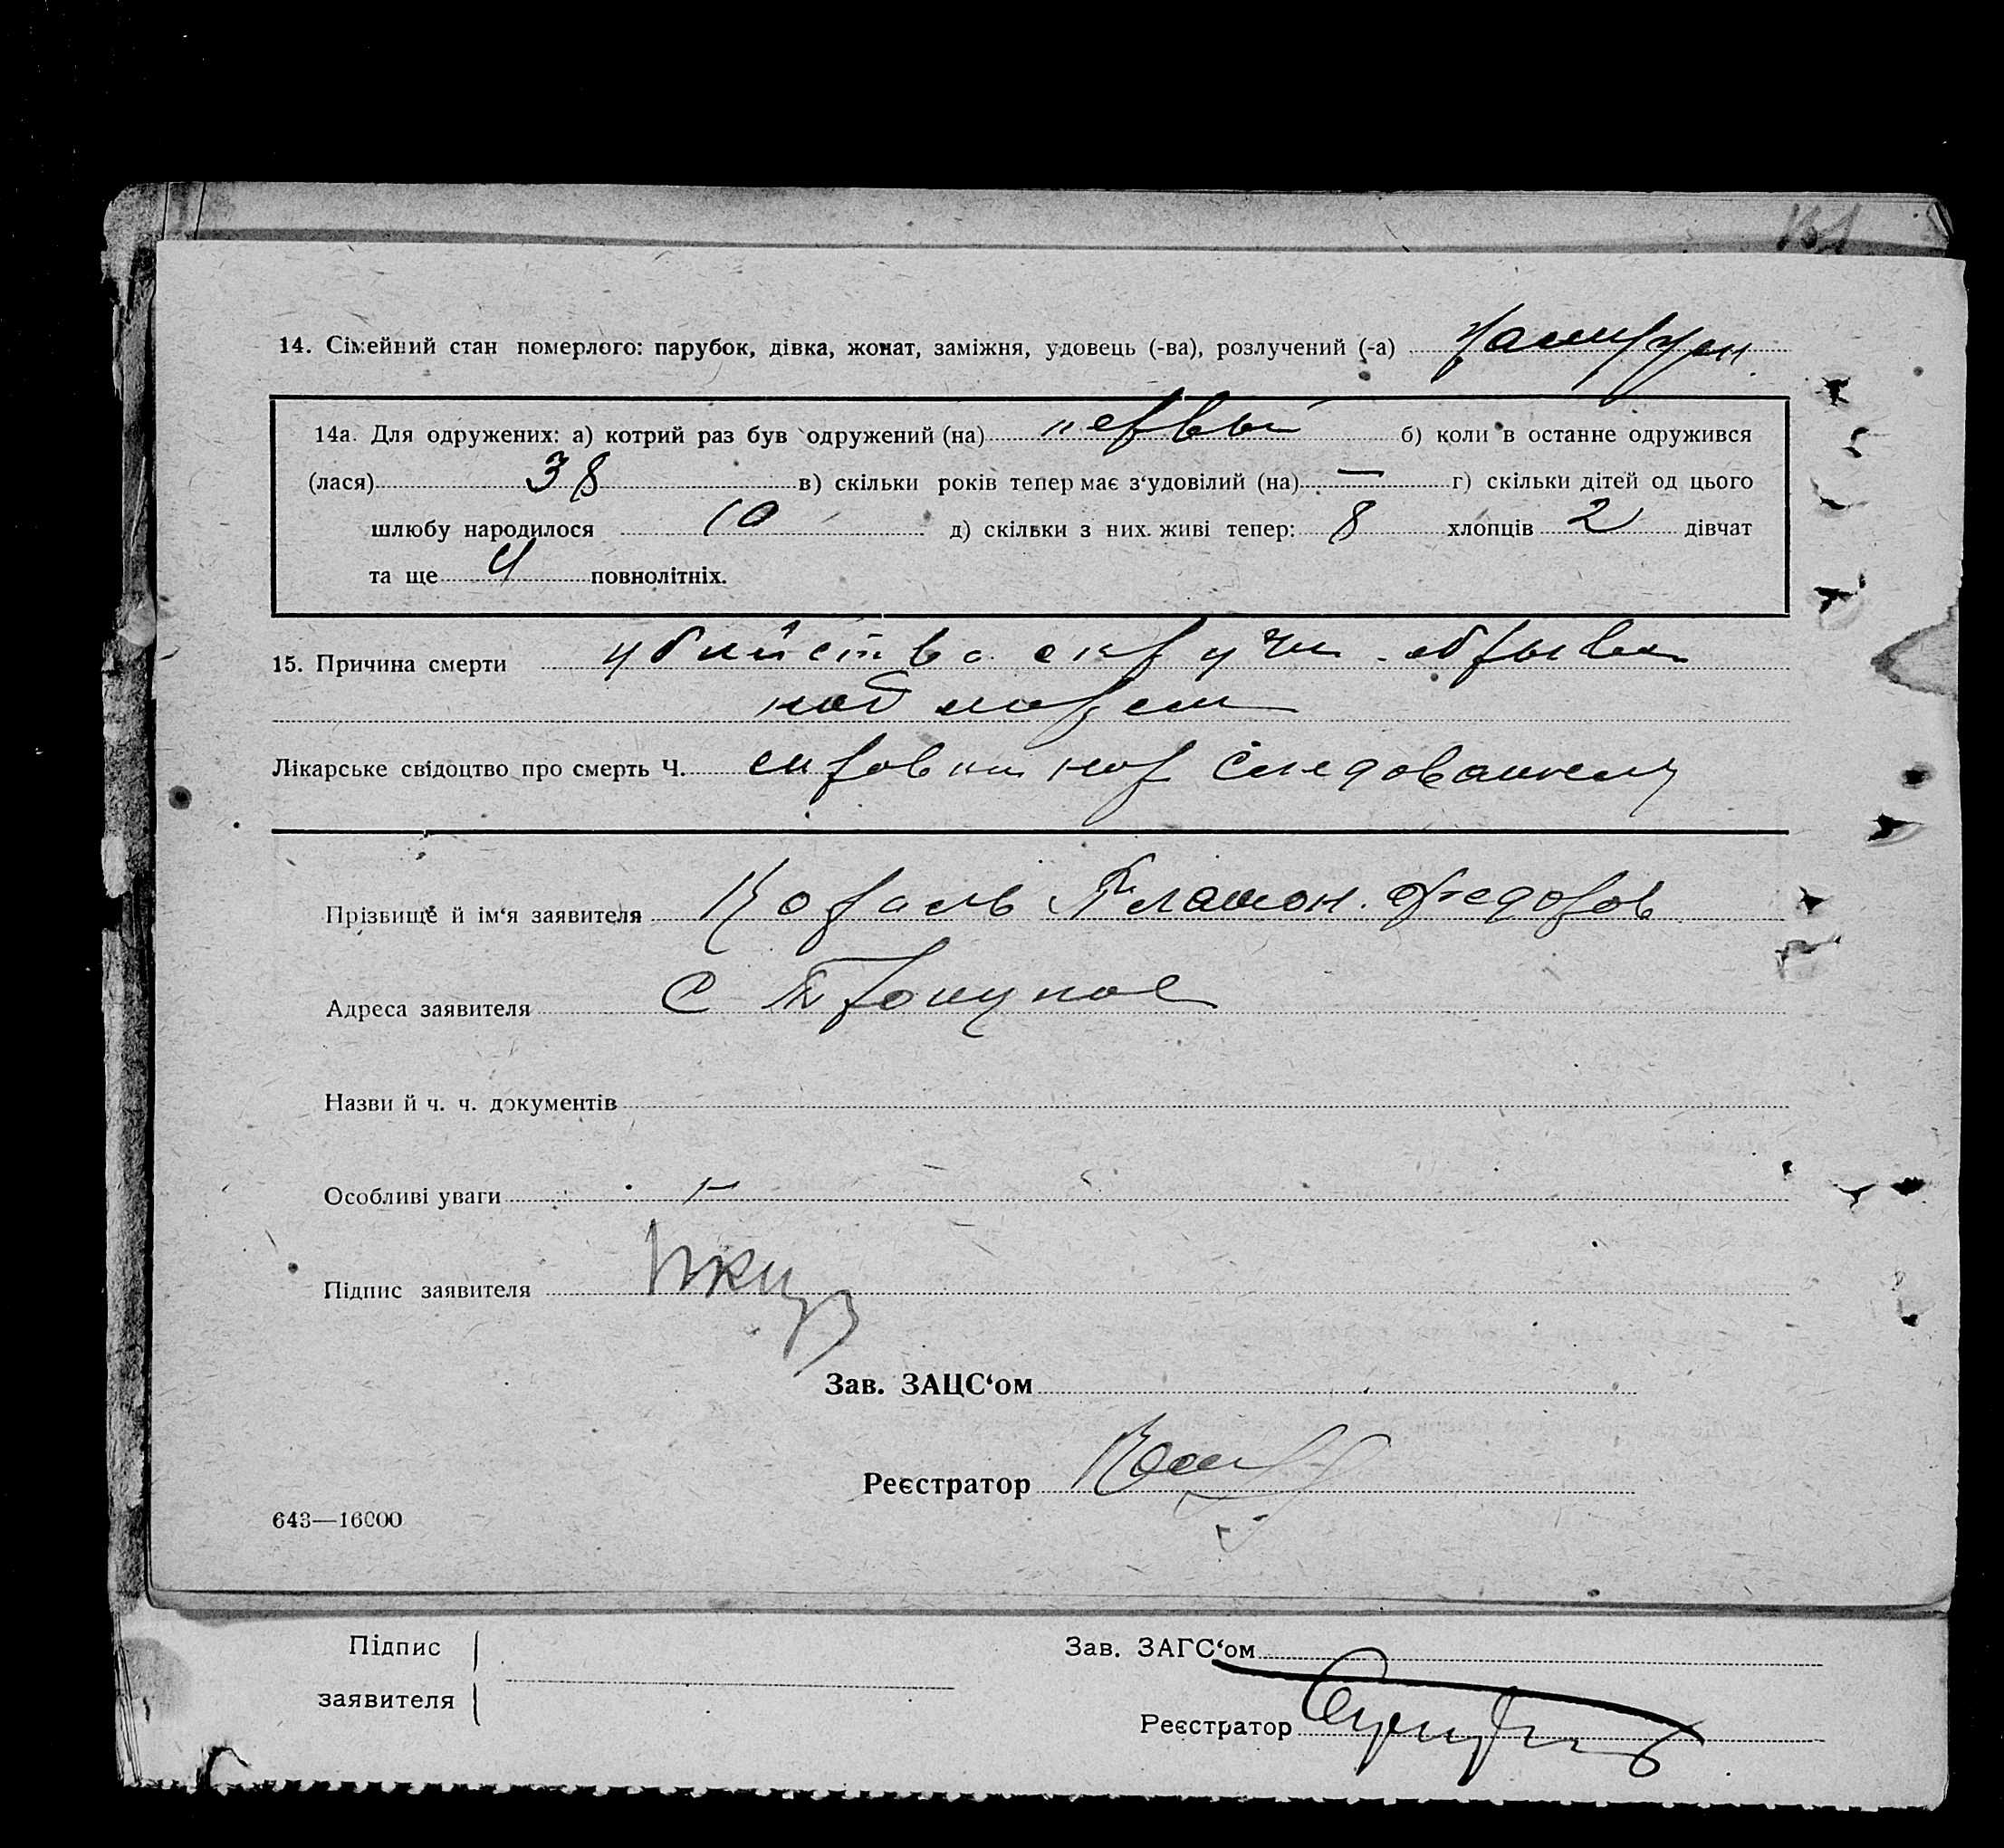 161
14. Сімейний стан померлого: парубок, дівка, жонат, заміжня, удовець (-ва), розлучений (-а)
14а. Для одружених: а) котрий раз був одружений (на) первый б) коли в останне одружився
(лася) 38 в) скільки років тепер має з‘удовілий (на) — г) скільки дітей од цього
шлюбу народилося 10 д) скільки з них живі тепер: 8 хлопців 2 дівчат
та ще 4 повнолітніх.
15. Причина смерти убийство обрыва
над морем
Лікарське свідоцтво про смерть Ч. следователя
Прізвище й ім‘я заявителя Коваль Платон Федоров
Адреса заявителя С
Назви й ч. ч. документів
Особливі уваги —
Підпис заявителя
Зав. ЗАЦС‘ом
Реєстратор
643—16000
Підпис
заявителя
Зав. ЗАГС‘ом
Реєстратор